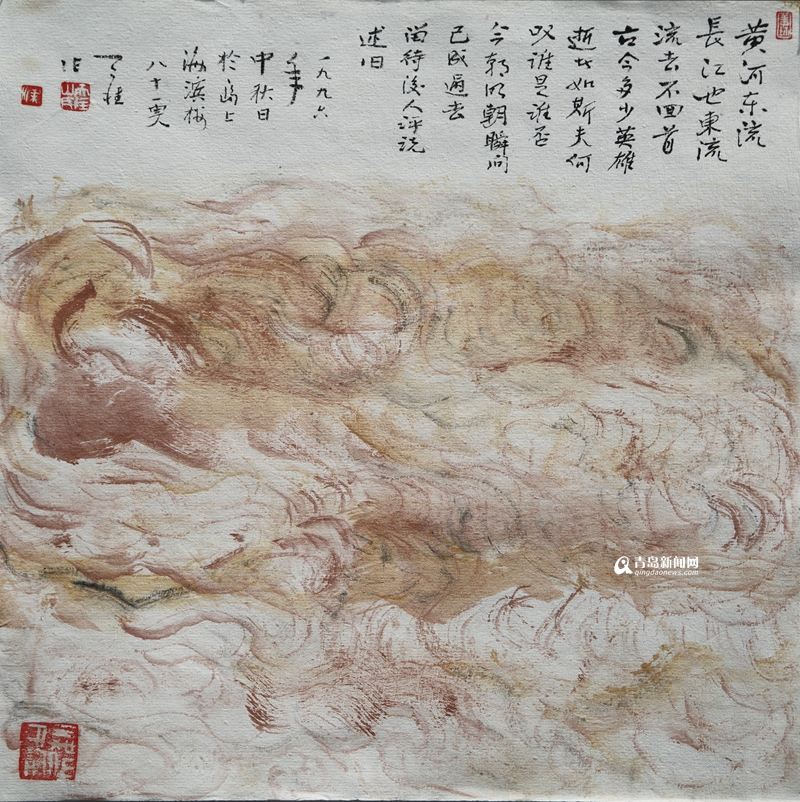 黄河东流
長江也東流
流去不回首
古今多少英雄
逝如斯夫何
叹谁是谁否
今朝明朝瞬间
已成過去
留待後人评说
述旧
一九九六
年
中秋日
於岛上
海滨楼
八十一叟
作
青岛新闻网
qingdaonews.com